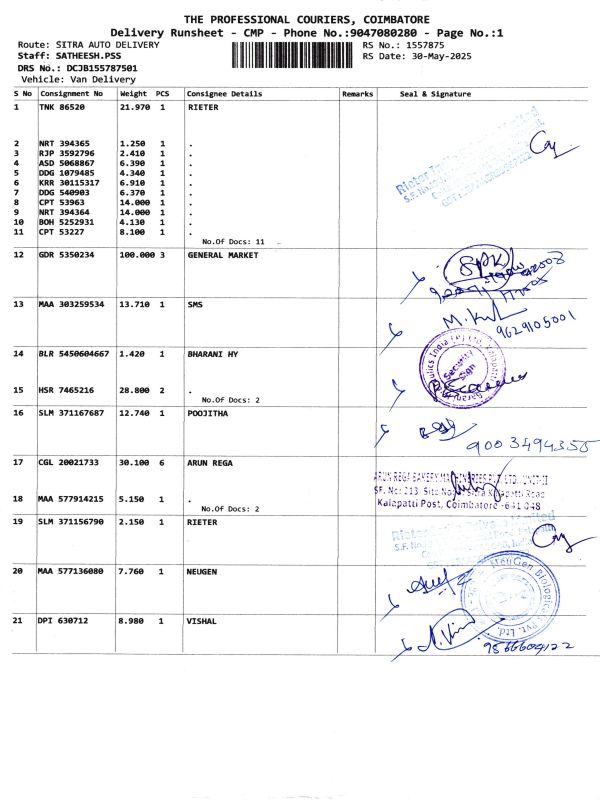 THE PROFESSIONAL COURIERS, COIMBATORE
Delivery Runsheet - CMP - Phone No.:9047080280 - Page No.:1
Route: SITRA AUTO DELIVERY
RS No.: 1557875
Staff: SATHEESH.PSS
RS Date: 30-May-2025
DRS No.: DCJB155787501
Vehicle: Van Delivery
S No Consignment No Weight PCS Consignee Details Remarks Seal & Signature
1 TNK 86520 21.970 1 RIETER
2 NRT 394365 1.250 1 .
3 RJP 3592796 2.410 1 .
4 ASD 5068867 6.390 1 .
5 DDG 1079485 4.340 1 .
6 KRR 30115317 6.910 1 .
7 DDG 540903 6.370 1 .
8 CPT 53963 14.000 1 .
9 NRT 394364 14.000 1 .
10 BOH 5252931 4.130 1 .
11 CPT 53227 8.100 1 .
No.Of Docs: 11
12 GDR 5350234 100.000 3 GENERAL MARKET
SPK
13 MAA 303259534 13.710 1 SMS
9629105001
14 BLR 5450604667 1.420 1 BHARANI HY
Security Sign
15 HSR 7465216 28.800 2 .
No.Of Docs: 2
16 SLM 371167687 12.740 1 POOJITHA
9003494355
17 CGL 20021733 30.100 6 ARUN REGA
ARUN REGA BAKERY PVT. LTD. UNIT-II
SF. No: 213 Kalapatti Road
Kalapatti Post, Coimbatore - 641 048
18 MAA 577914215 5.150 1 .
No.Of Docs: 2
19 SLM 371156790 2.150 1 RIETER
20 MAA 577136080 7.760 1 NEUGEN
NeuGen Biologics Pvt. Ltd.
21 DPI 630712 8.980 1 VISHAL
9566604122